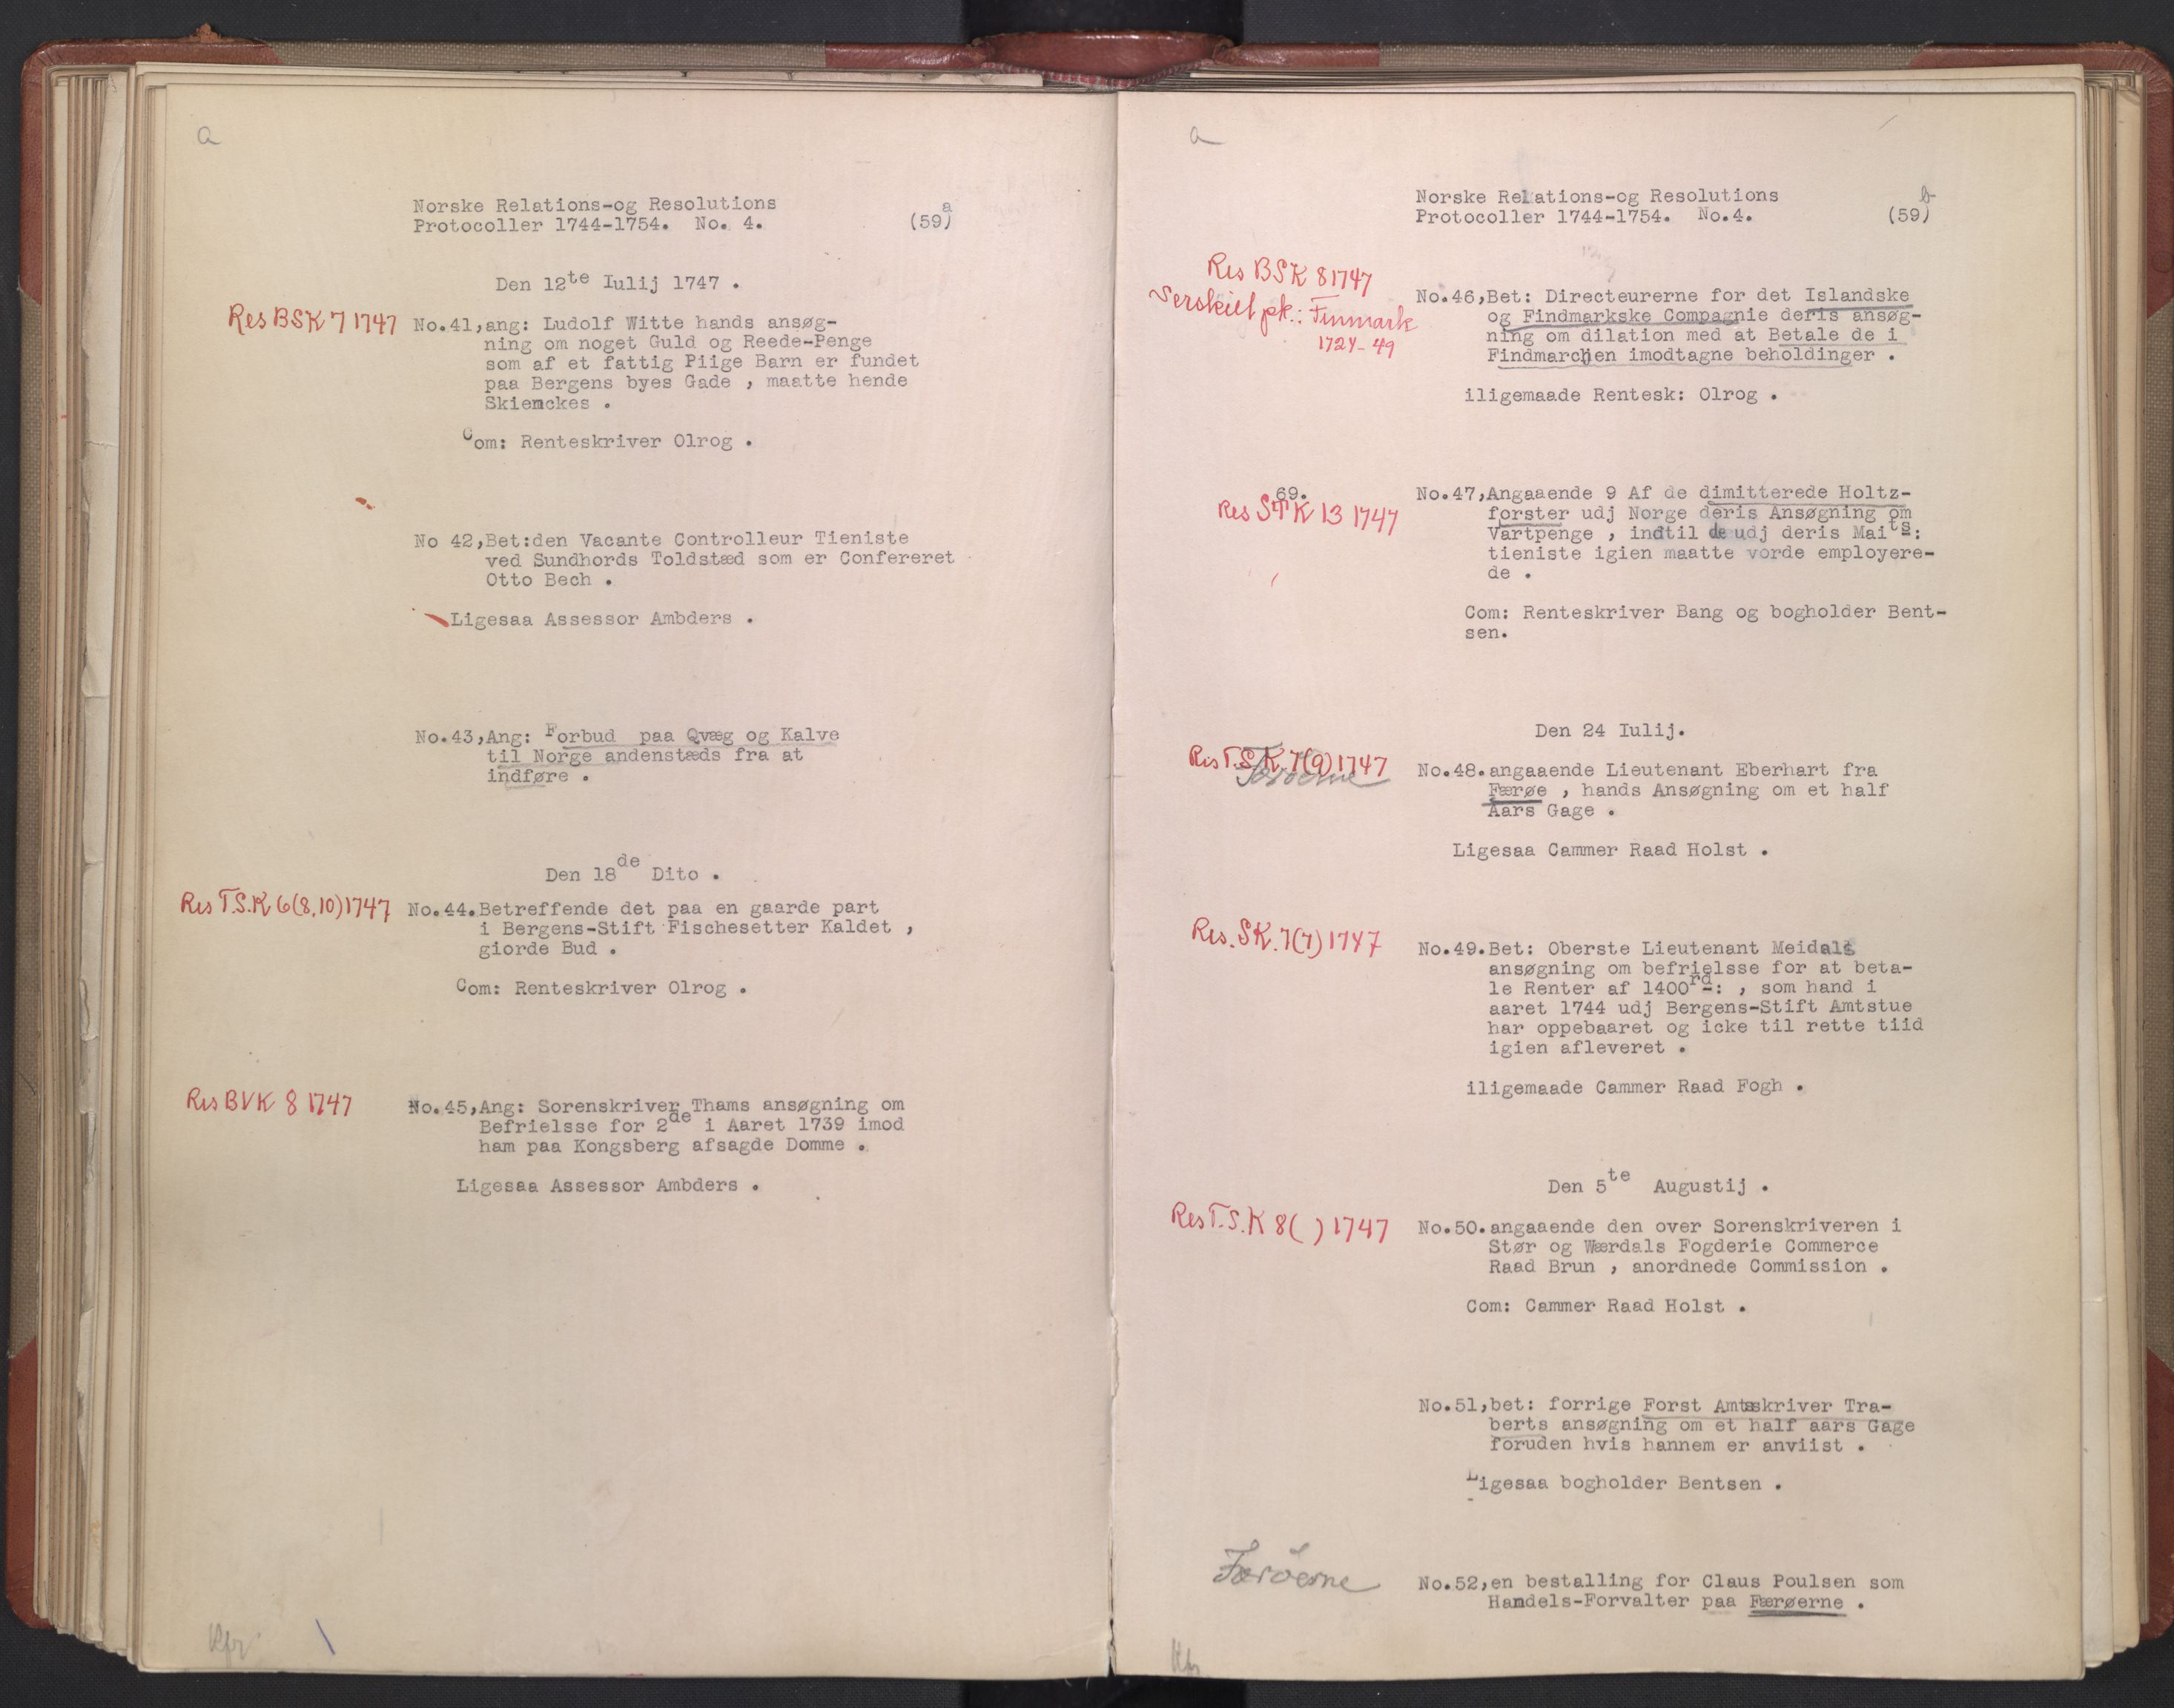 a
Norske Relations-og Resolutions
Protocoller 1744-1754. No. 4. (59)a
Den 12te Iulij 1747 .
Res BSK 7 1747 No.41,ang: Ludolf Witte hands ansøg-
ning om noget Guld og Reede-Penge
som af et fattig Piige Barn er fundet
paa Bergens byes Gade , maatte hende
Skienckes .
Com: Renteskriver Olrog .
No 42,Bet:den Vacante Controlleur Tieniste
ved Sundhords Toldstæd som er Confereret
Otto Bech .
Ligesaa Assessor Ambders .
No.43,Ang: Forbud paa Qvæg og Kalve
til Norge andenstæds fra at
indføre .
Den 18de Dito .
Res T.S.K 6(8,10)1747 No.44.Betreffende det paa en gaarde part
i Bergens-Stift Fischesetter Kaldet ,
giorde Bud .
Com: Renteskriver Olrog .
Res BVK 8 1747 No.45,Ang: Sorenskriver Thams ansøgning om
Befrielsse for 2de i Aaret 1739 imod
ham paa Kongsberg afsagde Domme .
Ligesaa Assessor Ambders .
Kfr
a
Norske Relations-og Resolutions
Protocoller 1744-1754. No.4. (59)b
Res BSK 8 1747
Serskilt pk.: Finmark
1724-49
No.46,Bet: Directeurerne for det Islandske
og Findmarkske Compagnie deris ansøg-
ning om dilation med at Betale de i
Findmarchen imodtagne beholdinger .
iligemaade Rentesk: Olrog .
69.
Res STK 13 1747
No.47,Angaaende 9 Af de dimitterede Holtz-
forster udj Norge deris Ansøgning om
Vartpenge , indtil de udj deris Maits:
tieniste igien maatte vorde employere-
de .
Com: Renteskriver Bang og bogholder Bent-
sen.
Den 24 Iulij.
Res T.S.K. 7(9)1747
Færöerne
No.48.angaaende Lieutenant Eberhart fra
Færøe , hands Ansøgning om et half
Aars Gage .
Ligesaa Cammer Raad Holst .
Res. SK. 7(7)1747
No.49.Bet: Oberste Lieutenant Meidals
ansøgning om befrielsse for at beta-
le Renter af 1400rd: , som hand i
aaret 1744 udj Bergens-Stift Amtstue
har oppebaaret og icke til rette tiid
igien afleveret .
iligemaade Cammer Raad Fogh .
Den 5te Augustij .
Res T.S.K 8( ) 1747 No.50.angaaende den over Sorenskriveren i
Stør og Wærdals Fogderie Commerce
Raad Brun , anordnede Commission .
Com: Cammer Raad Holst .
No.51,bet: forrige Forst Amtsskriver Tra-
berts ansøgning om et half aars Gage
foruden hvis hannem er anviist .
Ligesaa bogholder Bentsen .
Færöerne No.52,en bestalling for Claus Poulsen som
Handels-Forvalter paa Færøerne .
Kfr